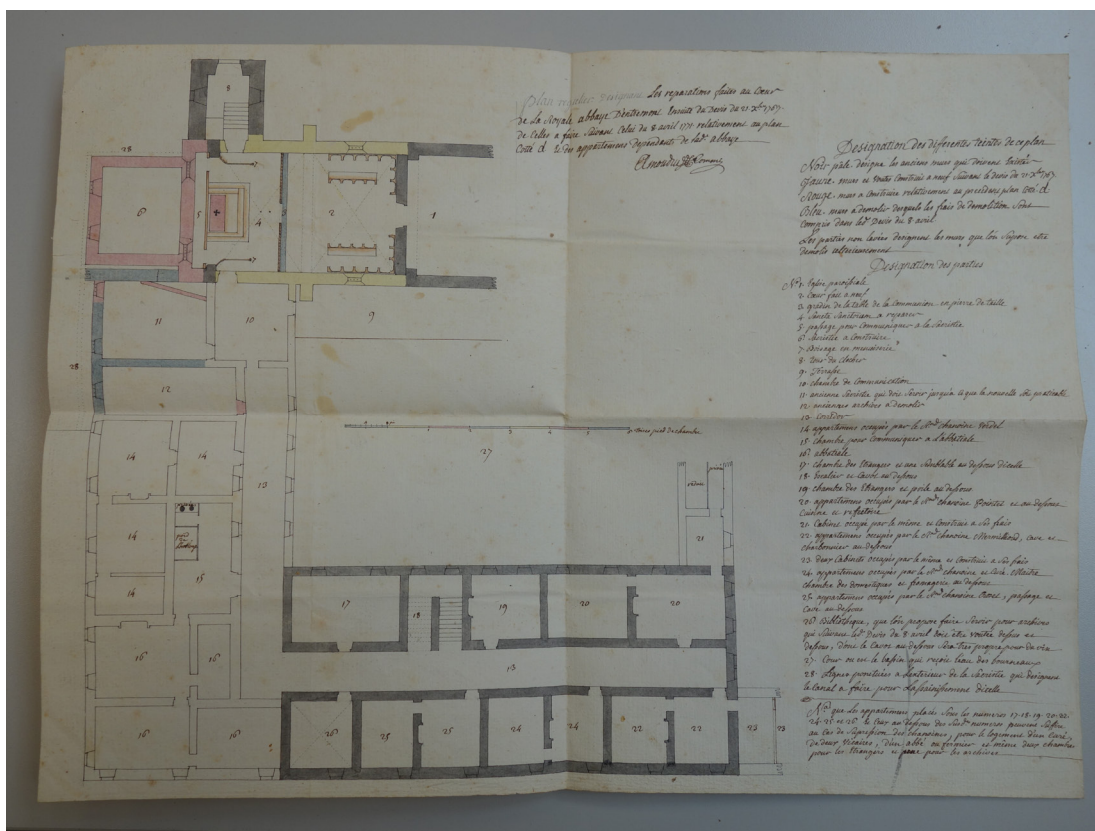 Plan régulier désignant Les reparations faites au Coeur
de La Royale abbaye D'entremont Ensuite du Devis du 21 Xbre 1767
de Celles a faire Suivant Celui du 8 avril 1771 relativement au plan
Cotté & des appartements dependants de lade abbaye
Amoudruz
Designation des differentes teintes de ce plan
Noir pale désigne les anciens murs qui doivent
Jaune, murs et voutes construits a neuf Suivant le devis du 21 Xbre 1767
Rouge, murs a construire relativement au precedent plan Coté
Bleu, murs a demolir desquels les frais de demolition sont
compris dans led. Devis du 8 avril
Les parties non lavées designent les murs que l'on Supose etre
demolis
Designation des parties
No 1. Eglise paroissiale
2. Coeur fait a neuf
3. gradin de la table de la Communion en pierre de taille
4. Sancta Sanctorum a reparer
5. passage pour Communiquer a la Sacristie
6. Sacristie a Construire
7. Boisage en menuiserie
8. Tour du clocher
9. Terrasse
10. chambre de communication
11. ancienne Sacristie qui doit Servir jusqu'a ce que la nouvelle soit pratiquable
12. anciennes archives a demolir
13. Corridor
14. appartement occupés par le Rd chanoine
15. chambre pour Communiquer a l'abbatiale
16. abbatiale
17. chambre des Etrangers et une Semblable au dessous d'icelle
18. Escalier et Cave au dessous
19. chambre des Etrangers et poile au dessous
20. appartement occupés par le Rd chanoine et au dessous
Cuisine et refectoire
21. Cabinet occupé par le même et Construit a Ses frais
22. appartement occupés par le Rd chanoine Mermilliod, cave et
charbonnier au dessous
23. deux Cabinets occupés par le même et Construits a Ses frais
24. appartement occupés par le Rd chanoine et Curé
chambre des domestiques et fromagerie au dessous
25. appartement occupés par le Rd chanoine, passage et
Cave au dessous
26. Bibliotheque, que l'on propose faire Servir pour archives
qui Suivant led. Devis du 8 avril doit etre voutée dessus et
dessous, dont la Cave au dessous Sera tres propre pour du vin
27. Cour ou est le bassin qui reçoit l'eau des bourneaux
28. Lignes ponctuées a l'exterieur de la Sacristie qui désignent
le Canal a faire pour l'assainissement d'icelle
Na que les appartements placés Sous les numeros 17. 18. 19. 20. 22.
24. 25. et 26. au dessous des Susd. numeros peuvent Suffire
au Cas de Supression des chanoines, pour le logement d'un Curé,
de deux Vicaires, d'un abbé ou fermier et même deux chambres
pour les Etrangers et pour les archives
8
28
7
6
5
4
2
1
7
11
10
9
28
12
1
2
3
4
5
27
14
14
13
14
15
14
21
17
18
19
20
20
16
16
13
16
16
26
25
25
24
24
22
22
23
23